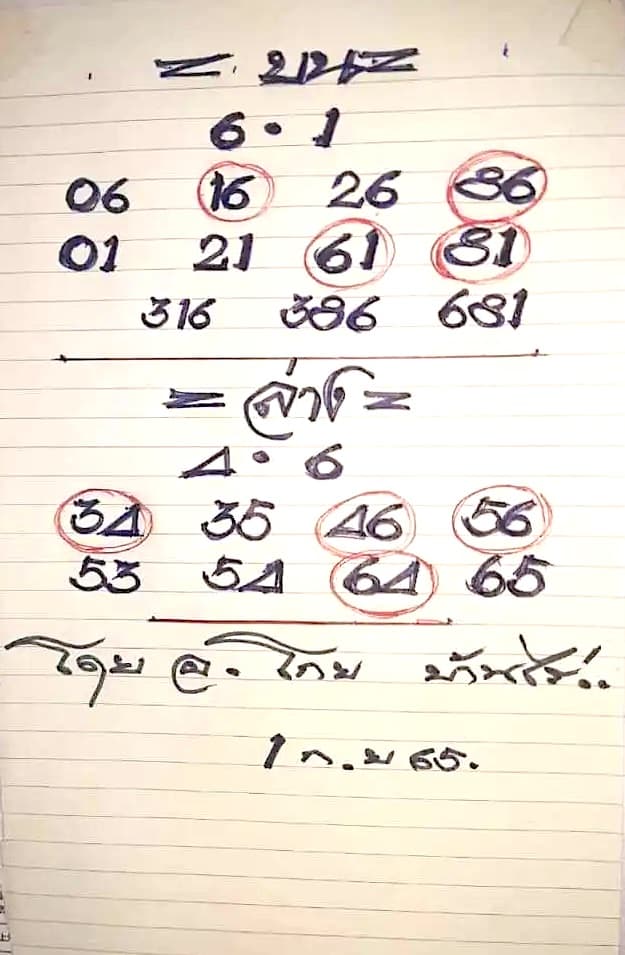 = บน =
6 • 1
06 16 26 86
01 21 61 81
316 386 681
= ล่าง =
4 • 6
34 35 46 56
53 54 64 65
โดย อ. โกย บ้านไร่..
1 ก.ย 65.